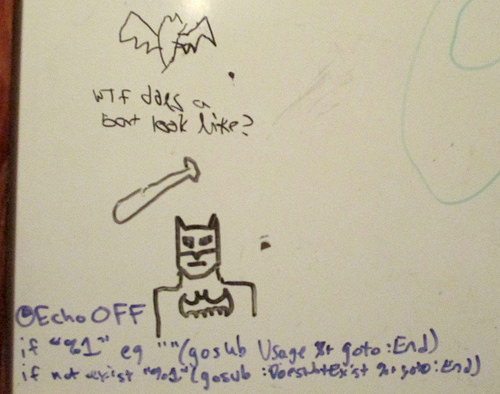 WTF does a
bat look like?
@Echo OFF
if "%1" eq ""(gosub Usage %+ goto :End)
if not exist "%1"(gosub :DoesntExist %+ goto :End)